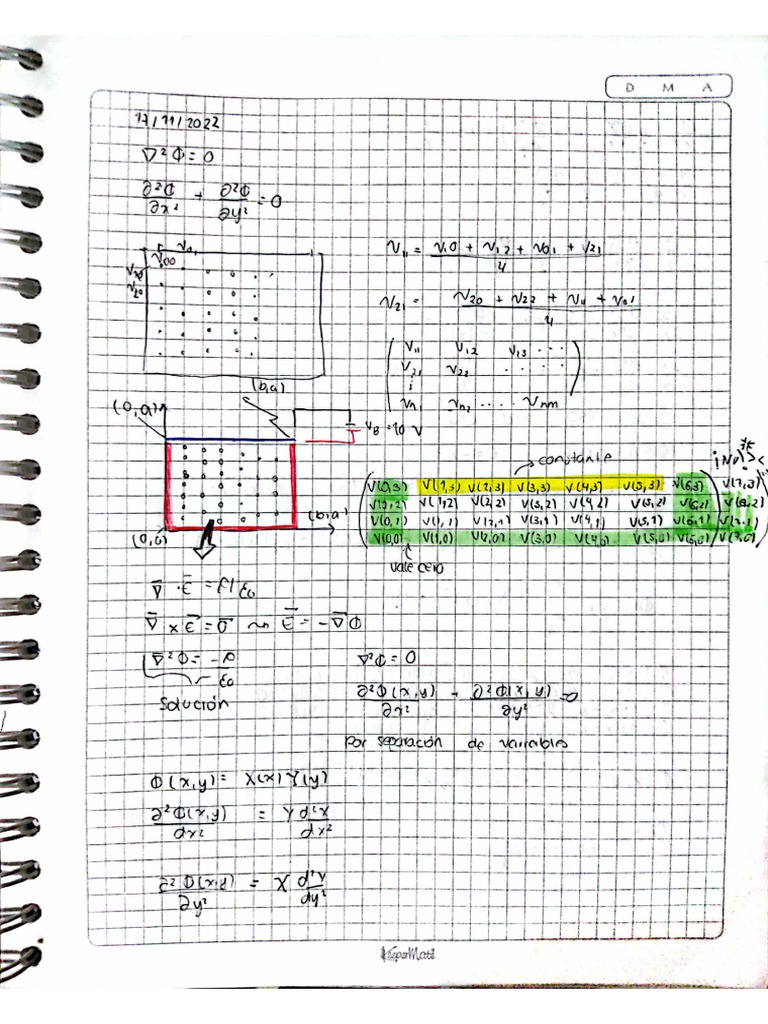 D M A
17/11/2022
∇²Φ=0
∂²Φ/∂x² + ∂²Φ/∂y² = 0
V00
V20
V11 = V10 + V12 + V01 + V21 / 4
V21 = V20 + V22 + V11 + / 4
V11 V12 V13 ...
V21 V22 ....
Vn1 Vn2 .... Vnm
(b,a)
(0,a)
VB = 10 V
constante
V(0,3) V(1,3) V(2,3) V(3,3) V(4,3) V(5,3) V(6,3) V(7,3)
V(0,2) V(1,2) V(2,2) V(3,2) V(4,2) V(5,2) V(6,2)
V(0,1) V(1,1) V(2,1) V(3,1) V(4,1) V(5,1) V(6,1) V(7,1)
V(0,0) V(1,0) V(2,0) V(3,0) V(4,0) V(5,0) V(6,0) V(7,0)
(0,0)
(b,a)
vale cero
∇·E = ρ/ε0
∇×E = 0 ⇝ E = -∇Φ
∇²Φ = -ρ/ε0
∇²Φ = 0
Solución
∂²Φ(x,y)/∂x² + ∂²Φ(x,y)/∂y² = 0
Por separación de variables
Φ(x,y) = X(x) Y(y)
∂²Φ(x,y)/∂x² = Y d²X/dx²
∂²Φ(x,y)/∂y² = X d²Y/dy²